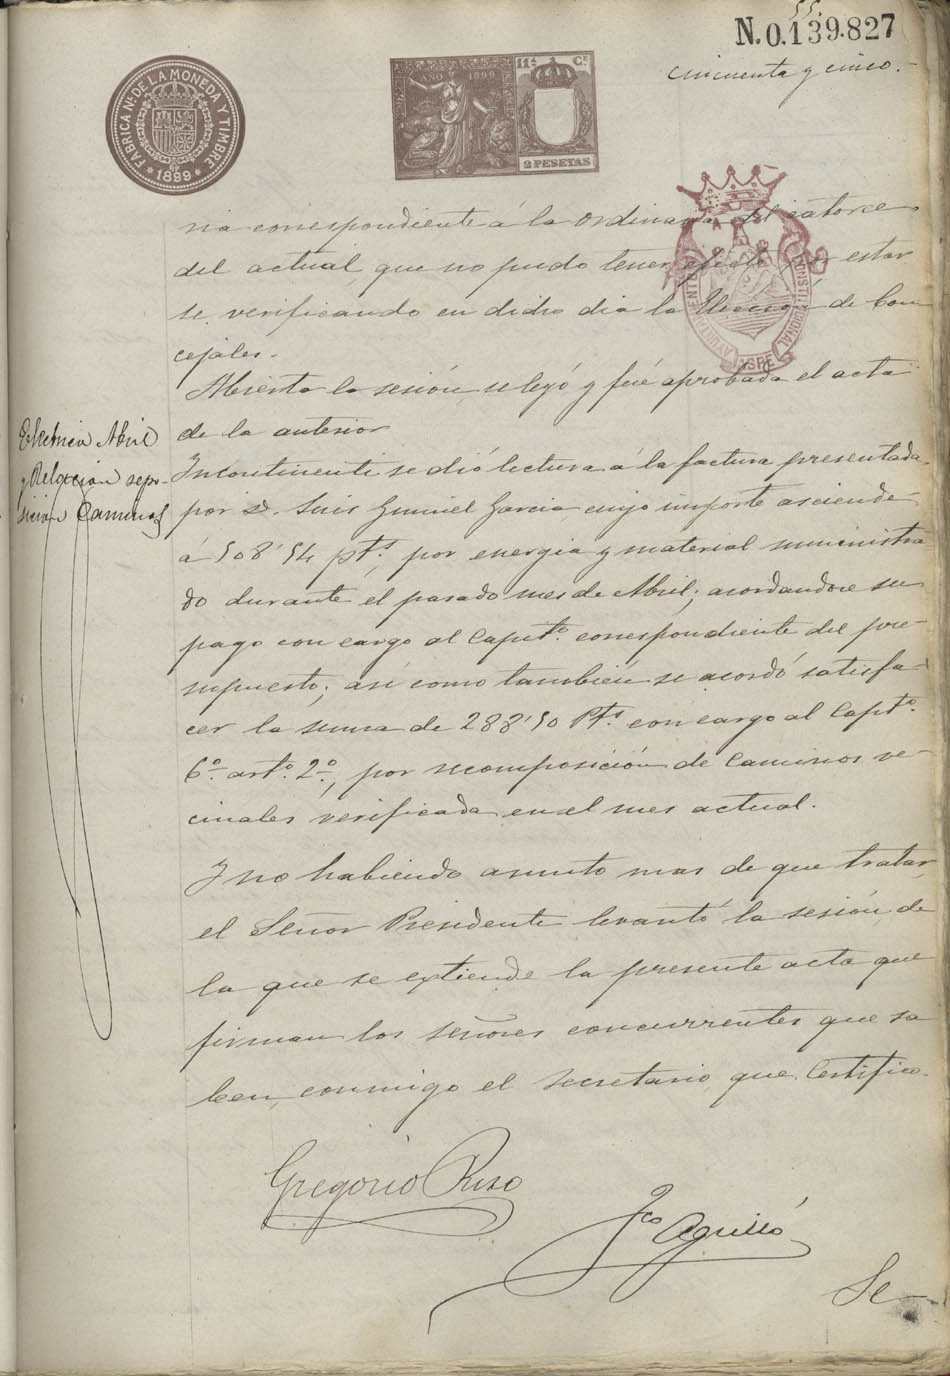 55.
N.0.139.827
cincuenta y cinco.-
FABRICA Nl. DE LA MONEDA Y TIMBRE
* 1899 *
AÑO 1899
11ª Cе.
2 PESETAS
AYUNTAMIENTO CONSTITUCIONAL
ASPE
ria correspondiente á la ordinaria del catorce
del actual, que no pudo tener efecto por estar
se verificando en dicho dia la elección de Con
cejales.-
Abierta la sesión, se leyó y fué aprobada el acta
de la anterior
Electrica Abril
y Relación repo-
sición Caminos
Incontinenti se dió lectura á la factura presentada
por D. Luis Gumiel Garcia, cuyo importe asciende
á 508'54 pts, por energia y material suministra
do durante el pasado mes de Abril; acordandose su
pago con cargo al Capitº. correspondiente del pre
supuesto; así como también se acordó satisfa
cer la suma de 288'50 Pts. con cargo al Capitº.
6º. artº. 2º., por recomposición de Caminos ve
cinales verificada en el mes actual.
Y no habiendo asunto mas de que tratar,
el Señor Presidente levantó la sesión, de
la que se extiende la presente acta que
firman los señores concurrentes que sa
ben, conmigo el secretario, que Certifico.
Gregorio Rizo
Fco Agulló
Se-